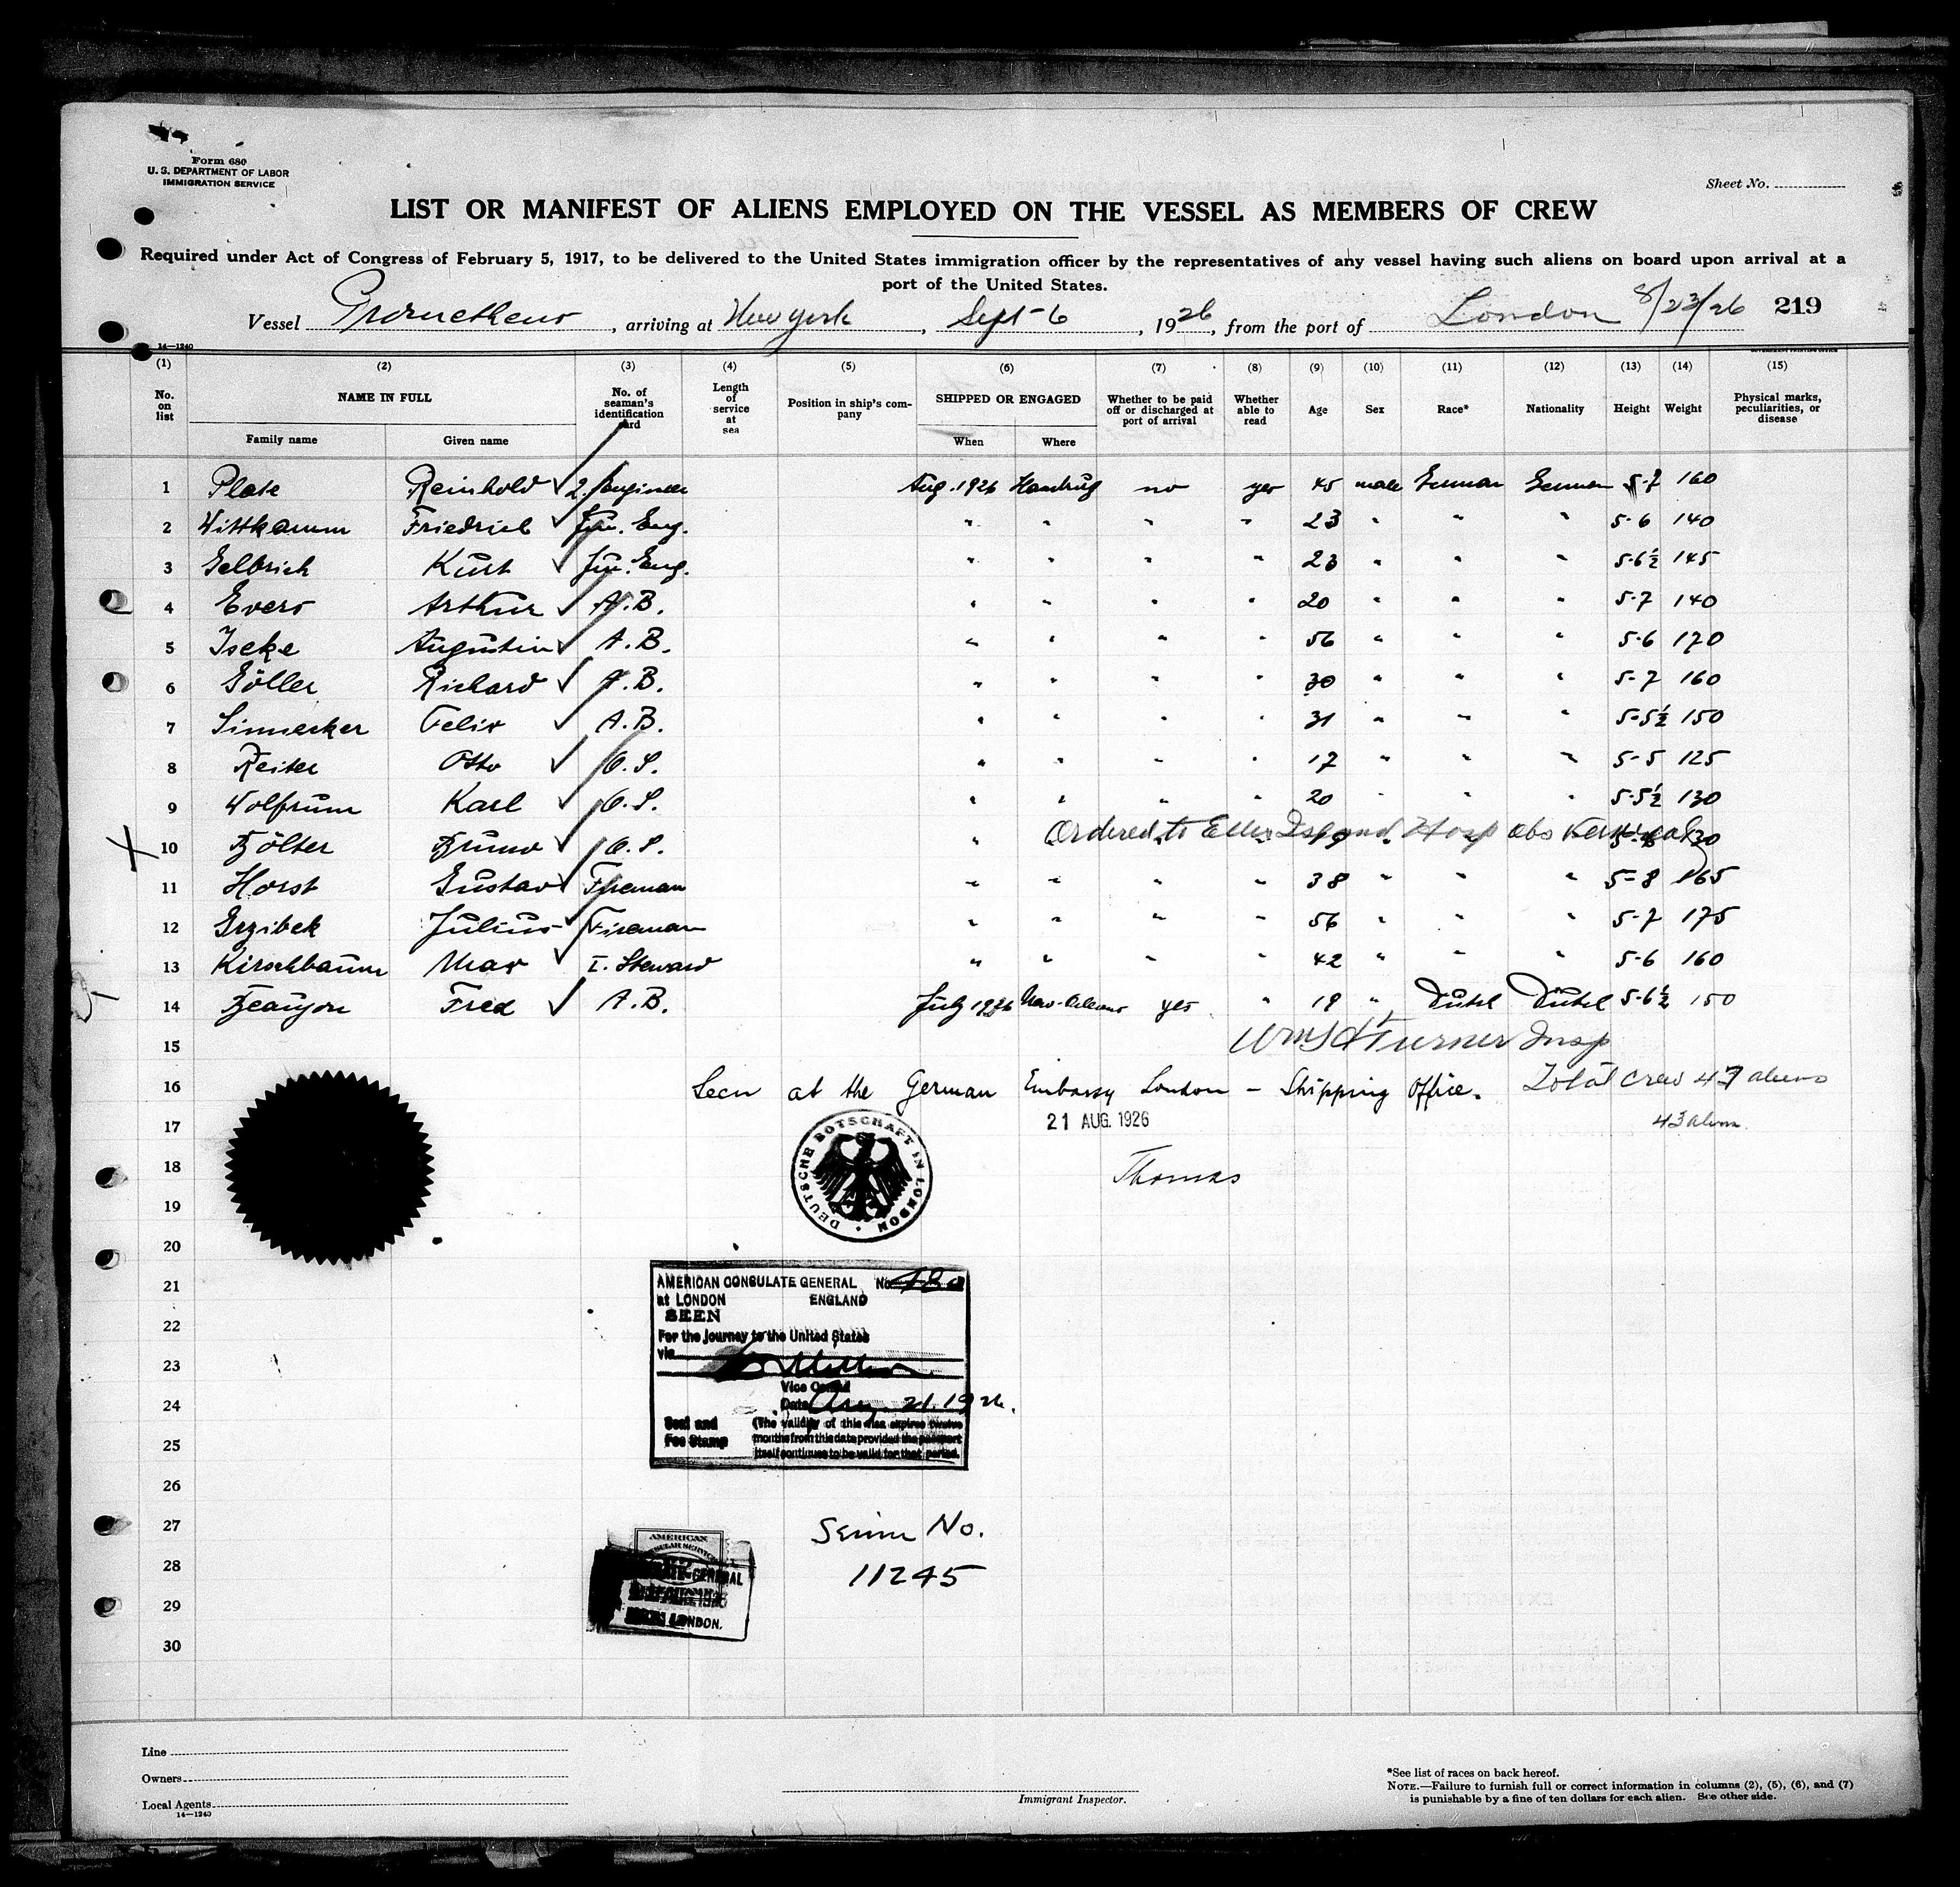 Form 680
U. S. DEPARTMENT OF LABOR
IMMIGRATION SERVICE
Sheet No.
LIST OR MANIFEST OF ALIENS EMPLOYED ON THE VESSEL AS MEMBERS OF CREW
Required under Act of Congress of February 5, 1917, to be delivered to the United States immigration officer by the representatives of any vessel having such aliens on board upon arrival at a
port of the United States.
Vessel Prometheus, arriving at New York, Sept-6, 1926, from the port of London 8/23/26 219
14—1240
(1) (2) (3) (4) (5) (6) (7) (8) (9) (10) (11) (12) (13) (14) (15)
No. on list NAME IN FULL No. of seaman's identification card Length of service at sea Position in ship's company SHIPPED OR ENGAGED Whether to be paid off or discharged at port of arrival Whether able to read Age Sex Race* Nationality Height Weight Physical marks, peculiarities, or disease
Family name Given name When Where
1 Plate Reinhold 2. Engineer Aug. 1926 Hamburg no yes 45 male German German 5-7 160
2 Wittkamm Friedrich Jun. Eng. " " " " 23 " " " 5-6 140
3 Gelbrich Kurt Jun. Eng. " " " " 23 " " " 5-6½ 145
4 Evers Arthur A.B. " " " " 20 " " " 5-7 140
5 Iseke Augustin A.B. " " " " 56 " " " 5-6 170
6 Göller Richard A.B. " " " " 30 " " " 5-7 160
7 Sinnecker Felix A.B. " " " " 31 " " " 5-5½ 150
8 Reiter Otto O.S. " " " " 17 " " " 5-5 125
9 Wolfrum Karl O.S. " " " " 20 " " " 5-5½ 130
Ordered to Ellis Island Hosp obs
10 Bölter Bruno O.S. " " " " 19 " " " 130
11 Horst Gustav Fireman " " " " 38 " " " 5-8 165
12 Grzibek Julius Fireman " " " " 56 " " " 5-7 175
13 Kirschbaum Max I. Steward " " " " 42 " " " 5-6 160
14 Fred A.B. July 1926 New-Orleans yes " 19 " Dutch Dutch 5-6½ 150
15 Turner Insp
16 Seen at the German Embassy London - Shipping Office. Total crew 47 aliens
17 21 AUG. 1926 43 aliens
DEUTSCHE BOTSCHAFT IN LONDON
18 Thomas
19
20
21 AMERICAN CONSULATE GENERAL No.
at LONDON ENGLAND
SEEN
22
For the journey to the United States
via
23
Vice Consul
24 Date Aug. 21. 1926.
Seal and Fee Stamp
(The validity of this visa expires twelve
25 months from this date provided the passport
itself continues to be valid for that period.
26
27 No.
AMERICAN
28 11245
29
LONDON.
30
Line
Owners
Local Agents
14—1240
Immigrant Inspector.
*See list of races on back hereof.
NOTE.—Failure to furnish full or correct information in columns (2), (5), (6), and (7)
is punishable by a fine of ten dollars for each alien. See other side.